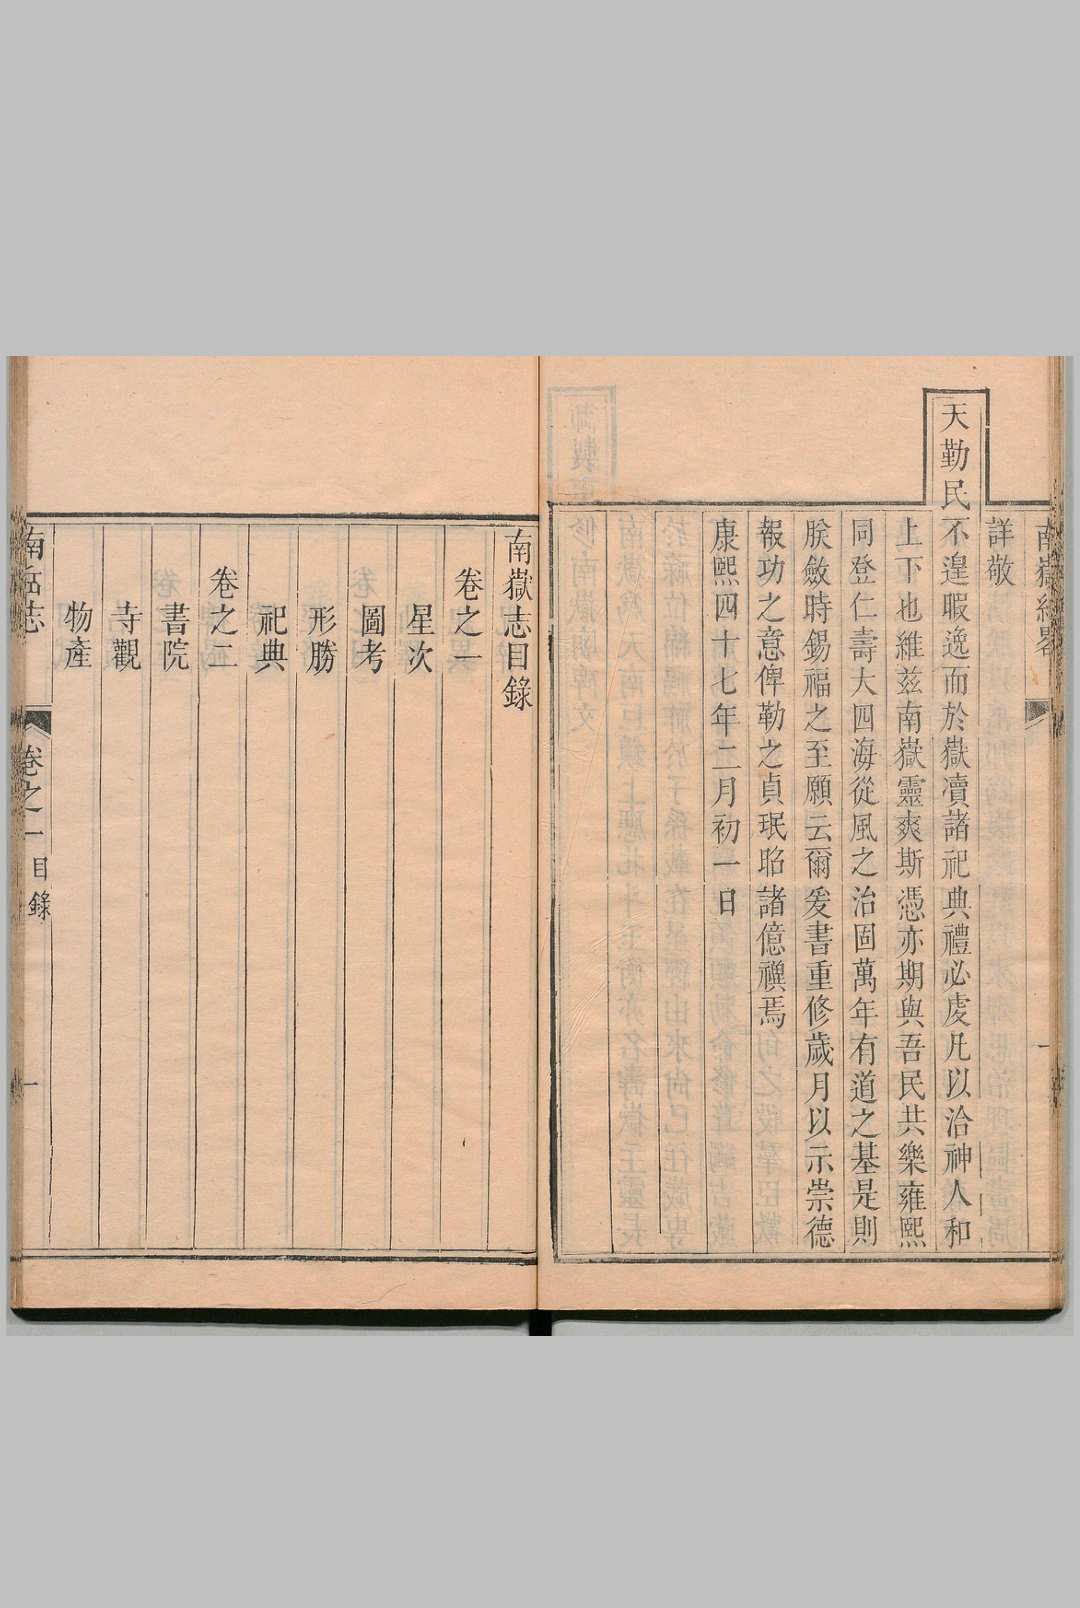 詳敬
天勤民不遑暇逸而於嶽瀆諸祀典禮必虔凡以洽神人和
上下也維兹南嶽靈爽斯憑亦期與吾民共樂雍熙
同登仁壽大四海從風之治固萬年有道之基是則
朕斂時錫福之至願云爾爰書重修歲月以示崇德
報功之意俾勒之貞珉昭諸億禩焉
康熙四十七年二月初一日
南嶽志目錄
卷之一
星次
圖考
形勝
祀典
卷之二
書院
寺觀
物產
南岳志 卷之一 目錄 一